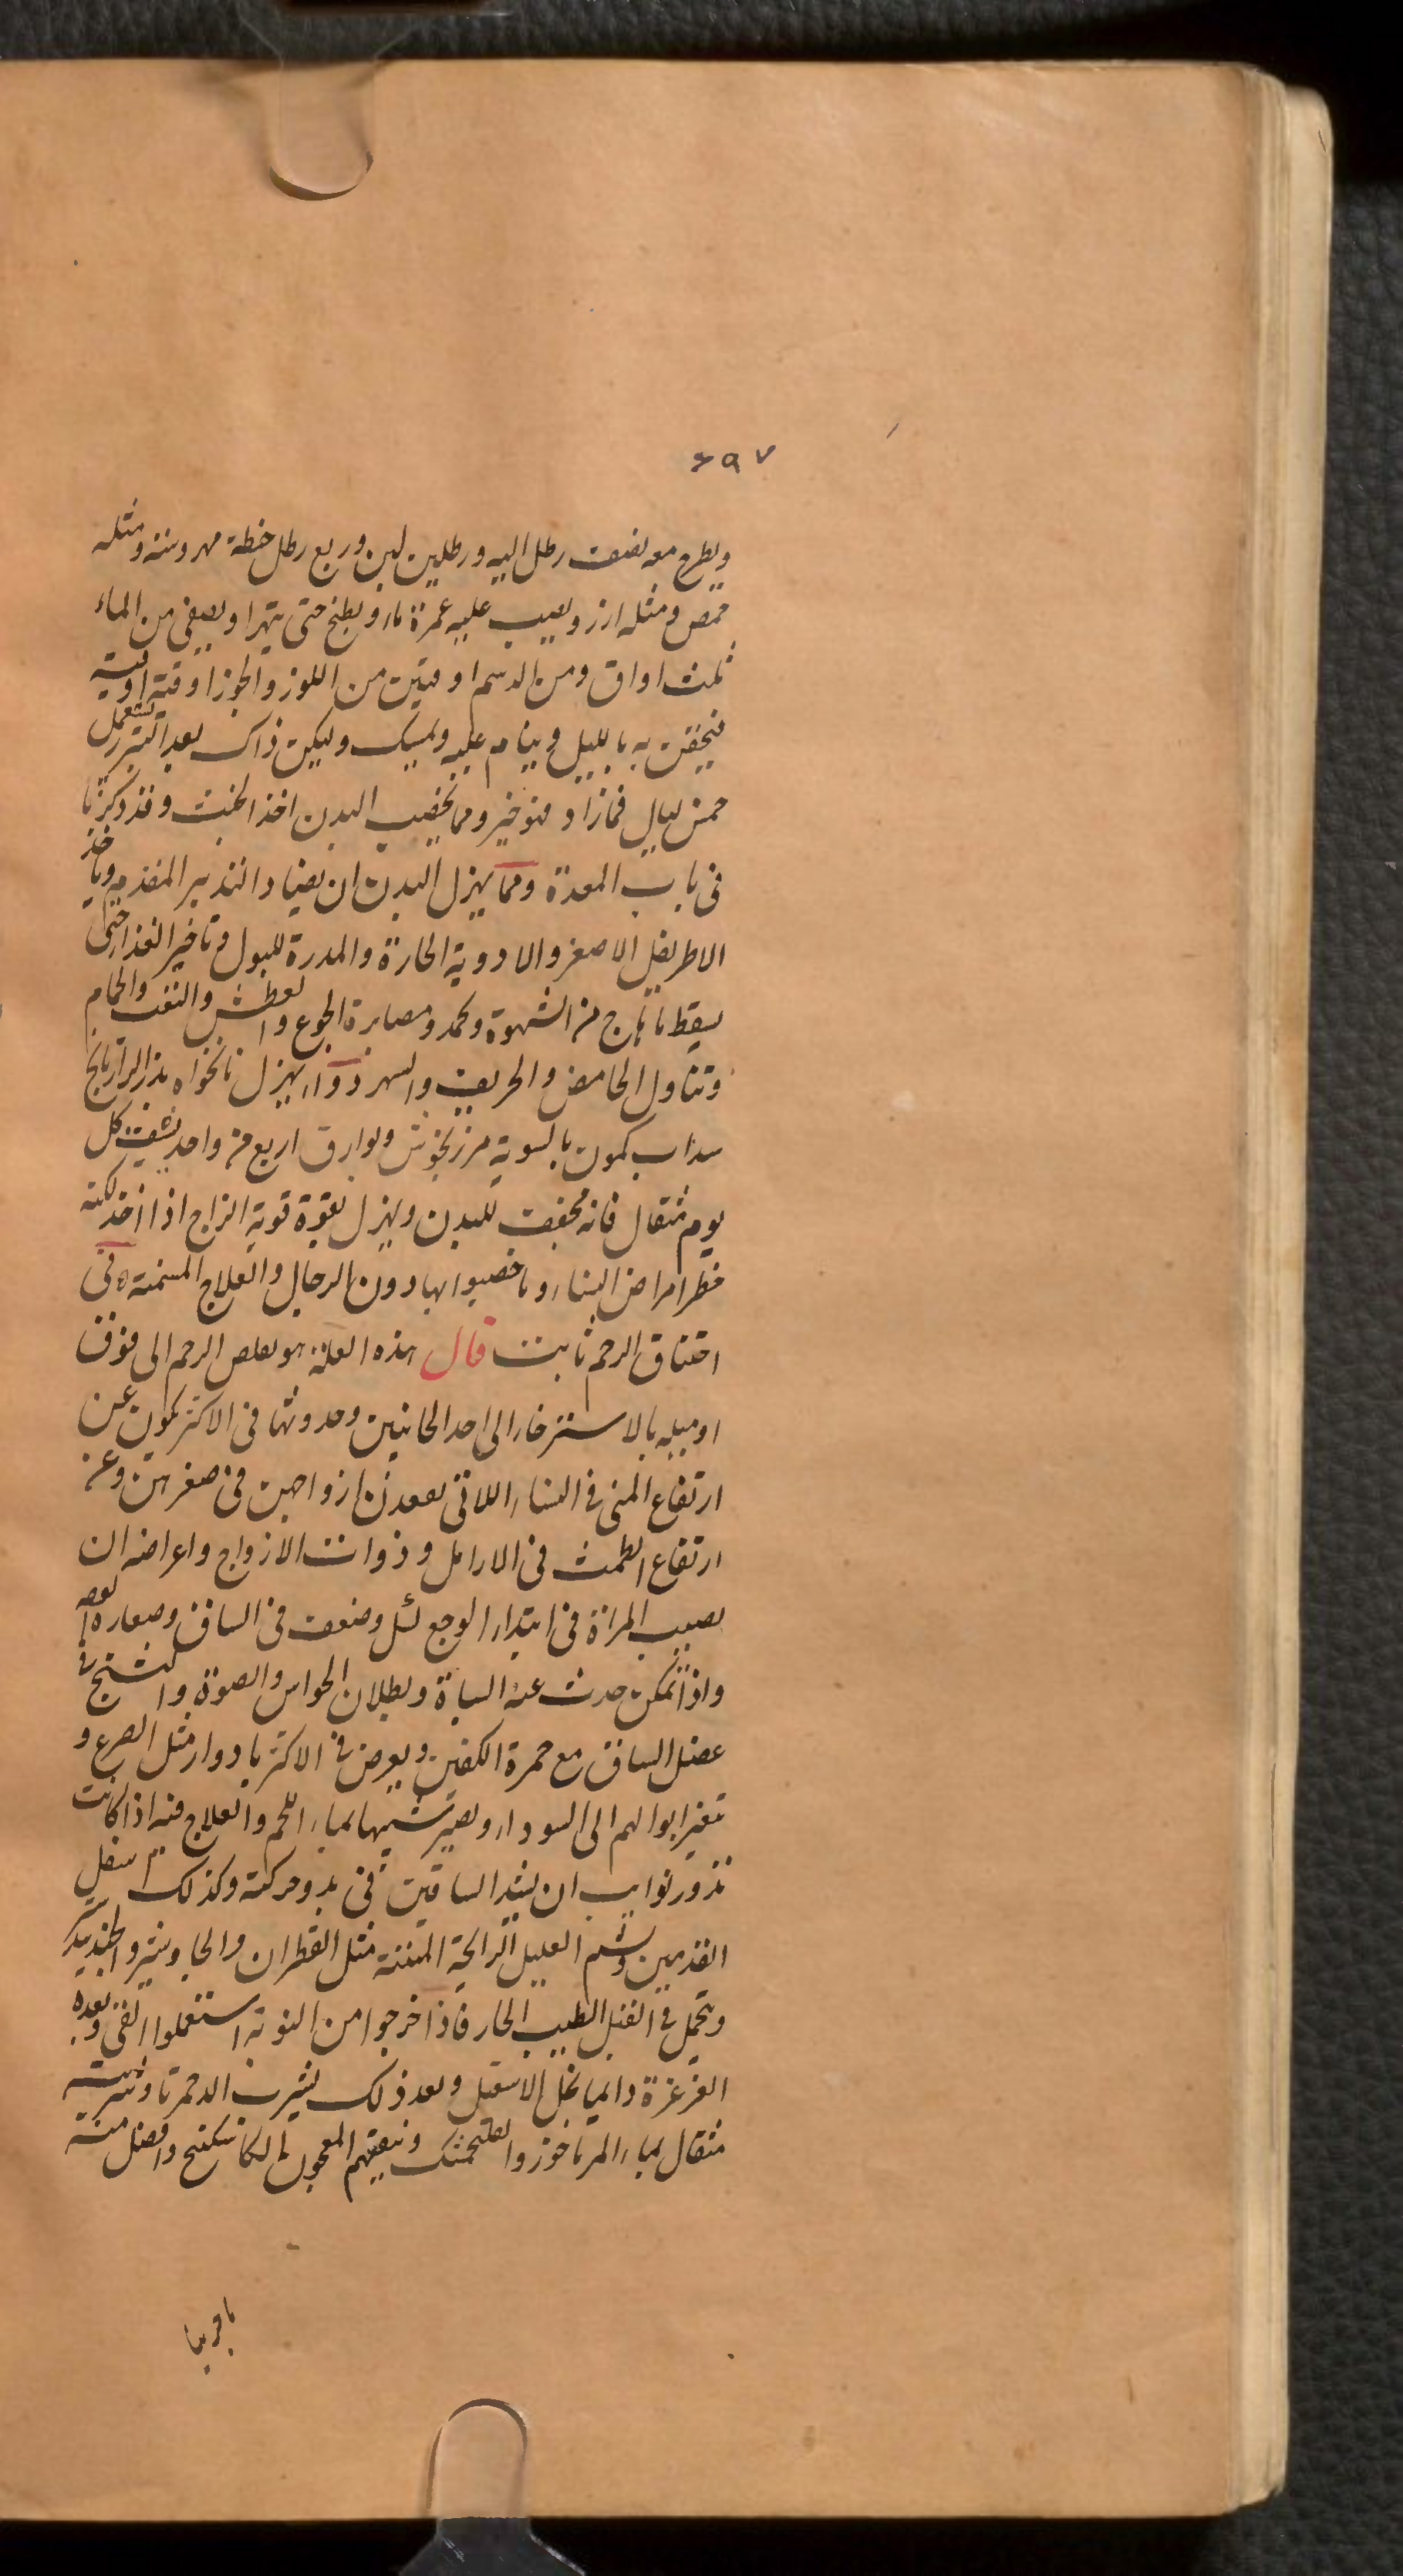 ۶۹۷
ويطرح معه نصف رطل اليه ورطلين لبن وربع رطل حنطة مهروسة ومثله
حمص ومثله ارز ويصب عليه غمرة ماء ويطبخ حتى يتهرا ويصفى من الماء
ثلث اواق ومن الدسم اوقيتين من اللوز والجوز اوقية اوقية
فيحقن به بالليل وينام عليه ويمسك وليكن ذاك بعد التبرز يستعمل
خمس ليال فما زاد فهو خير ومما يخصب البدن اخذ الخبث وقد ذكرنا
فى باب المعدة ومما يهزل البدن ان يضاد التدبير المقدم وياخذ
الاطريفل الاصغر والادوية الحارة والمدرة للبول وتاخير الغذا حتى
يسقط ما هاج من الشهوة ويخمد ومصابرة الجوع والعطش والتعب والحمام
وتناول الحامض والحريف والسهر دواء يهزل نانخواه بزر الرازيانج
سداب كمون بالسوية مرزنجوش وبوارق اربع من واحد يسف كل
يوم مثقال فانه مجفف للبدن ويهزل بقوة قوية المزاج اذا اخذ لكنه
خطر امراض النساء وما خصوا بها دون الرجال والعلاج المسمنة فى
اختناق الرحم ثابت قال هذه العلة هو تقلص الرحم الى فوق
او ميله بالاسترخاء الى احد الجانبين وحدوثها فى الاكثر يكون عن
ارتفاع المنى فى النساء اللاتى يفقدن ازواجهن فى صغرهن وعن
ارتفاع الطمث فى الارامل وذوات الازواج واعراضه ان
يصيب المراة فى ابتداء الوجع كسل وضعف فى الساق وصفارة
واذا تمكن حدث عنه السباة وبطلان الحواس والصوة والتشنج فى
عضل الساق مع حمرة الكفين ويعرض فى الاكثر بادوار مثل الصرع و
تغير ابوالهم الى السوداء ويصير شبيها بماء اللحم والعلاج فيه اذا كانت
تدور نوايب ان يشد الساقين فى بدو حركته وكذلك اسفل
القدمين ويشم العليل الرايحة المنتنة مثل القطران والجاوشير والجندبيد
ويحمل فى القبل الطيب الحار فاذا خرجوا من النوبة استعملوا القئ وبعده
الغرغرة دايما بخل الاسقيل وبعد ذلك يشرب الدحمرثا وشربته
مثقال بماء المرماخوز والفنجنكشت وينفعهم المعجون الكاسكبينج وافضل منه